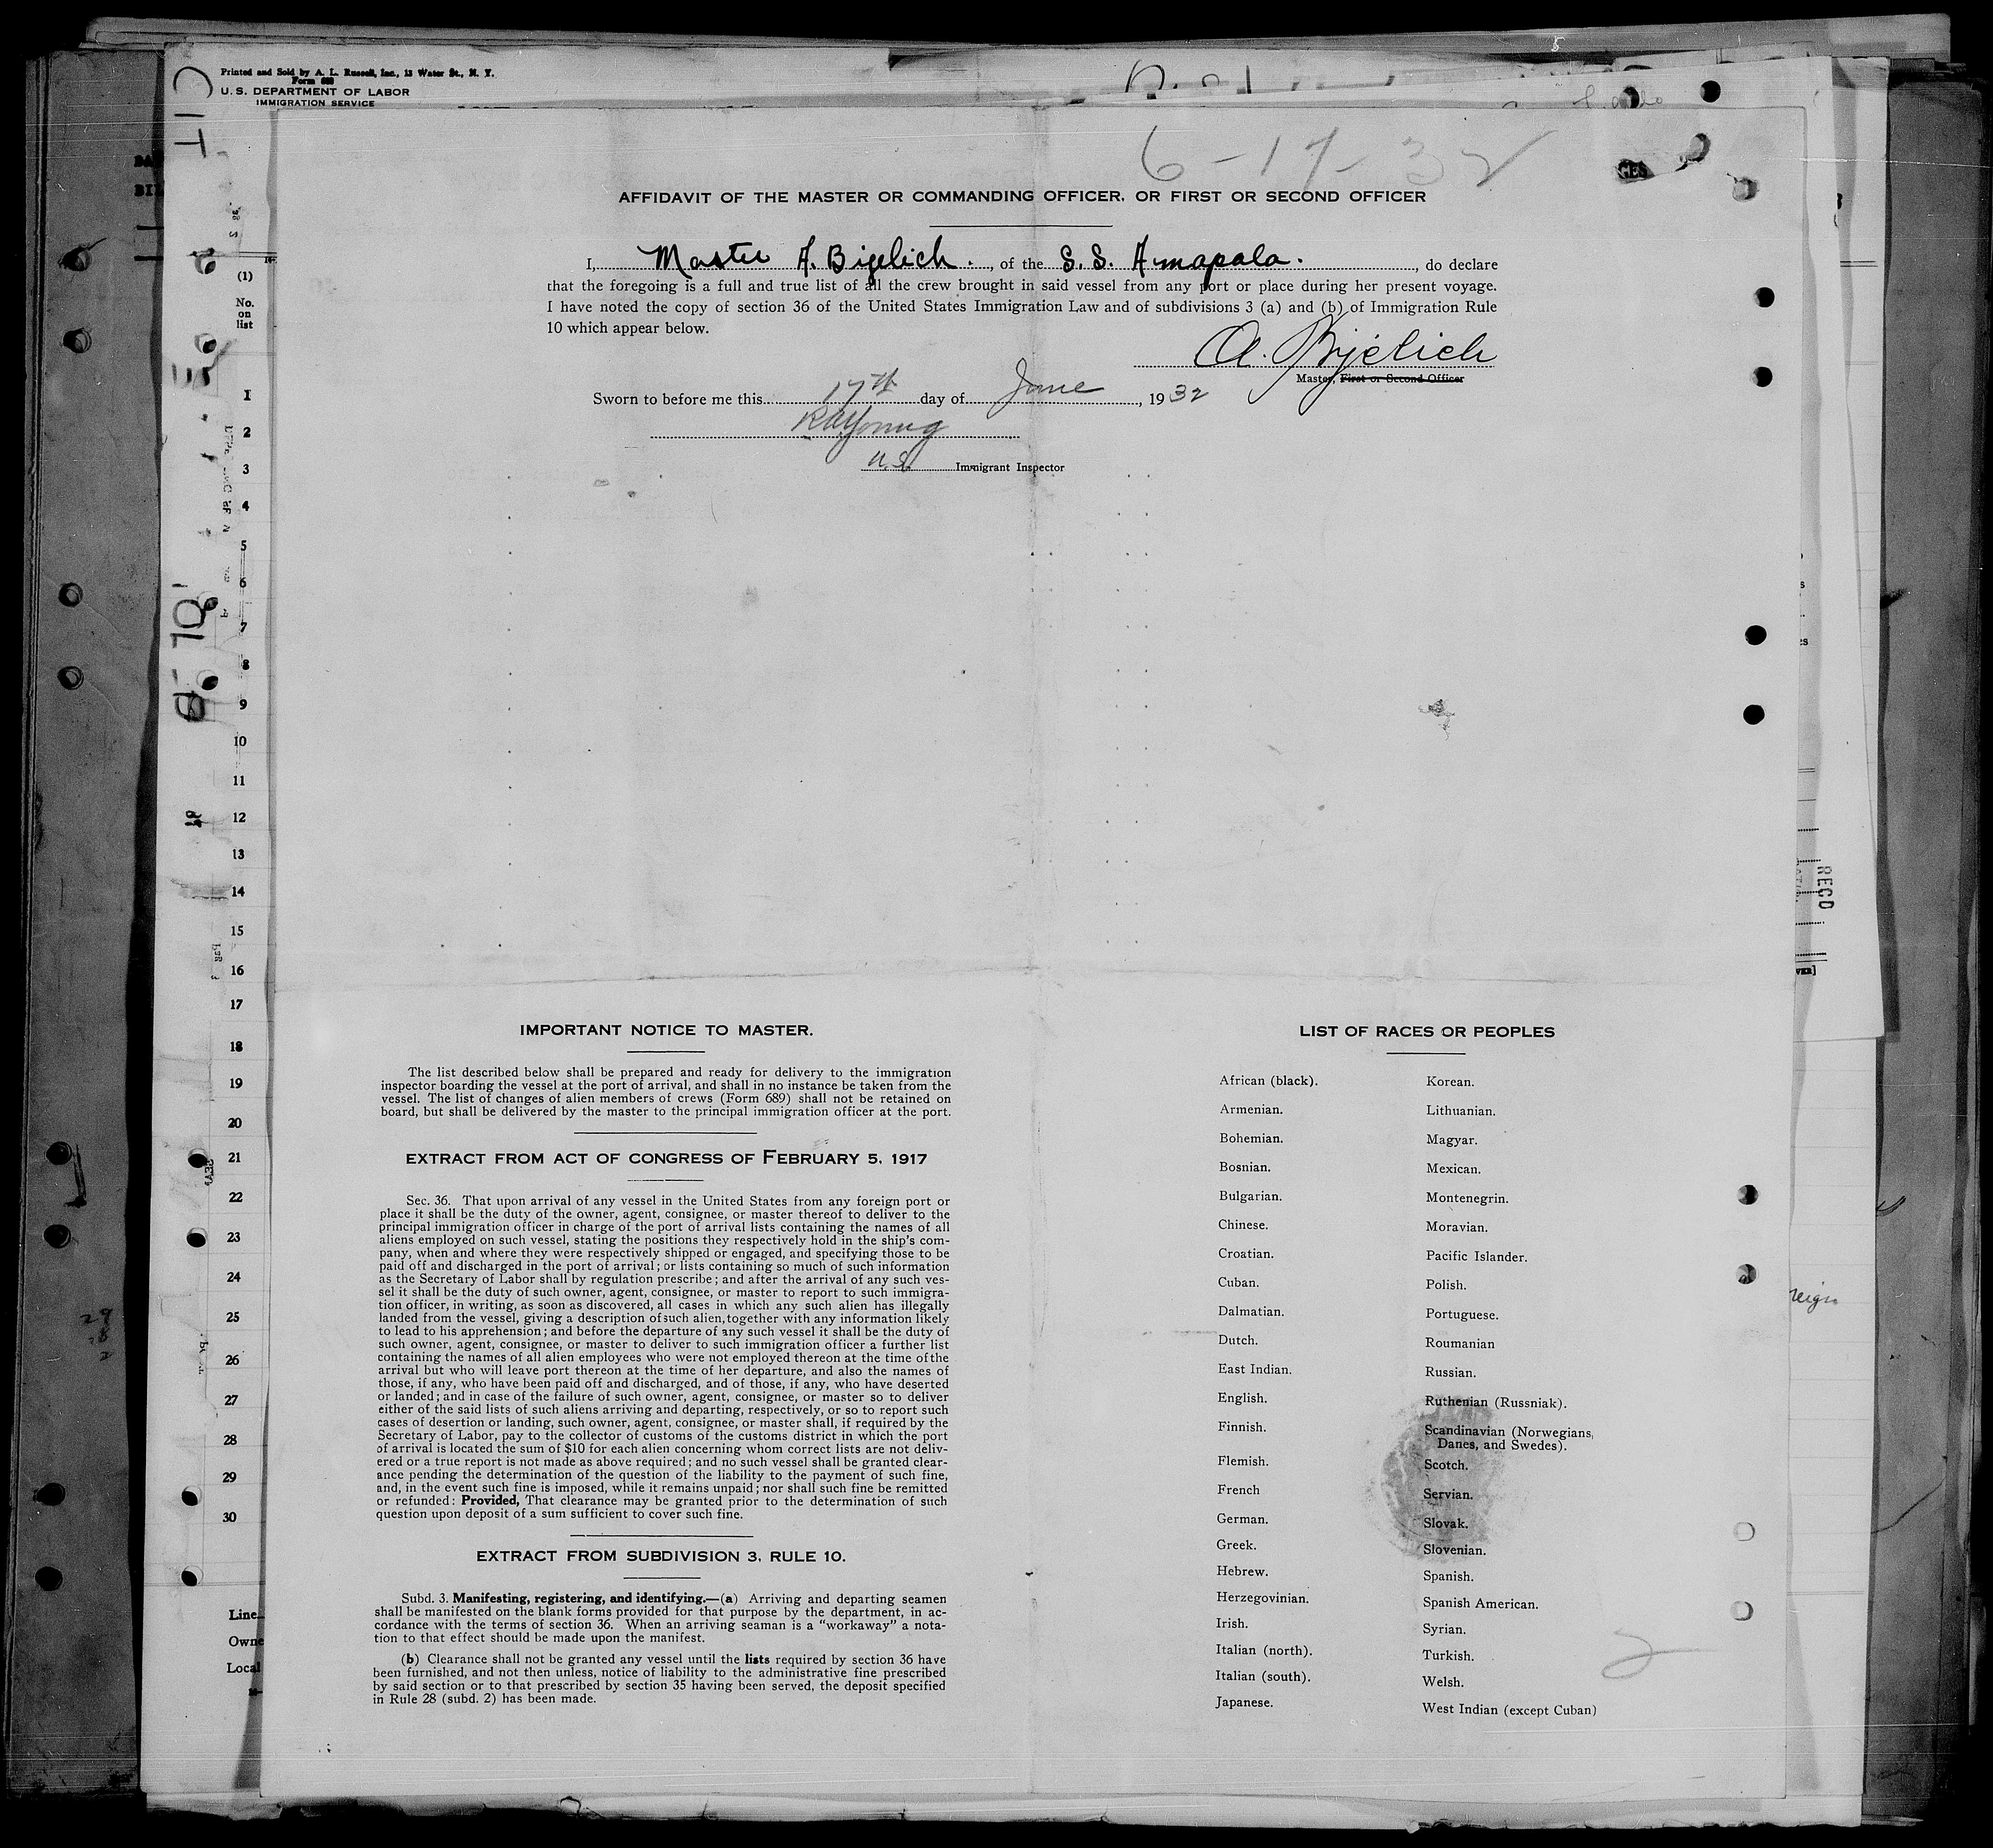 Printed and Sold by A. L. Russell, Inc., 13 Water St., N. Y.
Form 689
U.S. DEPARTMENT OF LABOR
IMMIGRATION SERVICE
6-17-32
AFFIDAVIT OF THE MASTER OR COMMANDING OFFICER, OR FIRST OR SECOND OFFICER
I, Master A. Bijelich., of the S.S. Amapala., do declare
that the foregoing is a full and true list of all the crew brought in said vessel from any port or place during her present voyage.
I have noted the copy of section 36 of the United States Immigration Law and of subdivisions 3 (a) and (b) of Immigration Rule
10 which appear below.
A. Bijelich
Master, First or Second Officer
Sworn to before me this 17th day of June, 1932
RA Young
U.S. Immigrant Inspector
(1)
No.
on
list
1
2
3
4
5
6
7
8
9
10
11
12
13
14
15
16
17
18
19
20
21
22
23
24
25
26
27
28
29
30
Line
Owne
Local
RECD
IMPORTANT NOTICE TO MASTER.
The list described below shall be prepared and ready for delivery to the immigration
inspector boarding the vessel at the port of arrival, and shall in no instance be taken from the
vessel. The list of changes of alien members of crews (Form 689) shall not be retained on
board, but shall be delivered by the master to the principal immigration officer at the port.
EXTRACT FROM ACT OF CONGRESS OF FEBRUARY 5, 1917
Sec. 36. That upon arrival of any vessel in the United States from any foreign port or
place it shall be the duty of the owner, agent, consignee, or master thereof to deliver to the
principal immigration officer in charge of the port of arrival lists containing the names of all
aliens employed on such vessel, stating the positions they respectively hold in the ship's com-
pany, when and where they were respectively shipped or engaged, and specifying those to be
paid off and discharged in the port of arrival; or lists containing so much of such information
as the Secretary of Labor shall by regulation prescribe; and after the arrival of any such ves-
sel it shall be the duty of such owner, agent, consignee, or master to report to such immigra-
tion officer, in writing, as soon as discovered, all cases in which any such alien has illegally
landed from the vessel, giving a description of such alien, together with any information likely
to lead to his apprehension; and before the departure of any such vessel it shall be the duty of
such owner, agent, consignee, or master to deliver to such immigration officer a further list
containing the names of all alien employees who were not employed thereon at the time of the
arrival but who will leave port thereon at the time of her departure, and also the names of
those, if any, who have been paid off and discharged, and of those, if any, who have deserted
or landed; and in case of the failure of such owner, agent, consignee, or master so to deliver
either of the said lists of such aliens arriving and departing, respectively, or so to report such
cases of desertion or landing, such owner, agent, consignee, or master shall, if required by the
Secretary of Labor, pay to the collector of customs of the customs district in which the port
of arrival is located the sum of $10 for each alien concerning whom correct lists are not deliv-
ered or a true report is not made as above required; and no such vessel shall be granted clear-
ance pending the determination of the question of the liability to the payment of such fine,
and, in the event such fine is imposed, while it remains unpaid; nor shall such fine be remitted
or refunded: Provided, That clearance may be granted prior to the determination of such
question upon deposit of a sum sufficient to cover such fine.
EXTRACT FROM SUBDIVISION 3, RULE 10.
Subd. 3. Manifesting, registering, and identifying.—(a) Arriving and departing seamen
shall be manifested on the blank forms provided for that purpose by the department, in ac-
cordance with the terms of section 36. When an arriving seaman is a "workaway" a nota-
tion to that effect should be made upon the manifest.
(b) Clearance shall not be granted any vessel until the lists required by section 36 have
been furnished, and not then unless, notice of liability to the administrative fine prescribed
by said section or to that prescribed by section 35 having been served, the deposit specified
in Rule 28 (subd. 2) has been made.
LIST OF RACES OR PEOPLES
African (black).
Armenian.
Bohemian.
Bosnian.
Bulgarian.
Chinese.
Croatian.
Cuban.
Dalmatian.
Dutch.
East Indian.
English.
Finnish.
Flemish.
French
German.
Greek.
Hebrew.
Herzegovinian.
Irish.
Italian (north).
Italian (south).
Japanese.
Korean.
Lithuanian.
Magyar.
Mexican.
Montenegrin.
Moravian.
Pacific Islander.
Polish.
Portuguese.
Roumanian
Russian.
Ruthenian (Russniak).
Scandinavian (Norwegians,
Danes, and Swedes).
Scotch.
Servian.
Slovak.
Slovenian.
Spanish.
Spanish American.
Syrian.
Turkish.
Welsh.
West Indian (except Cuban)
2